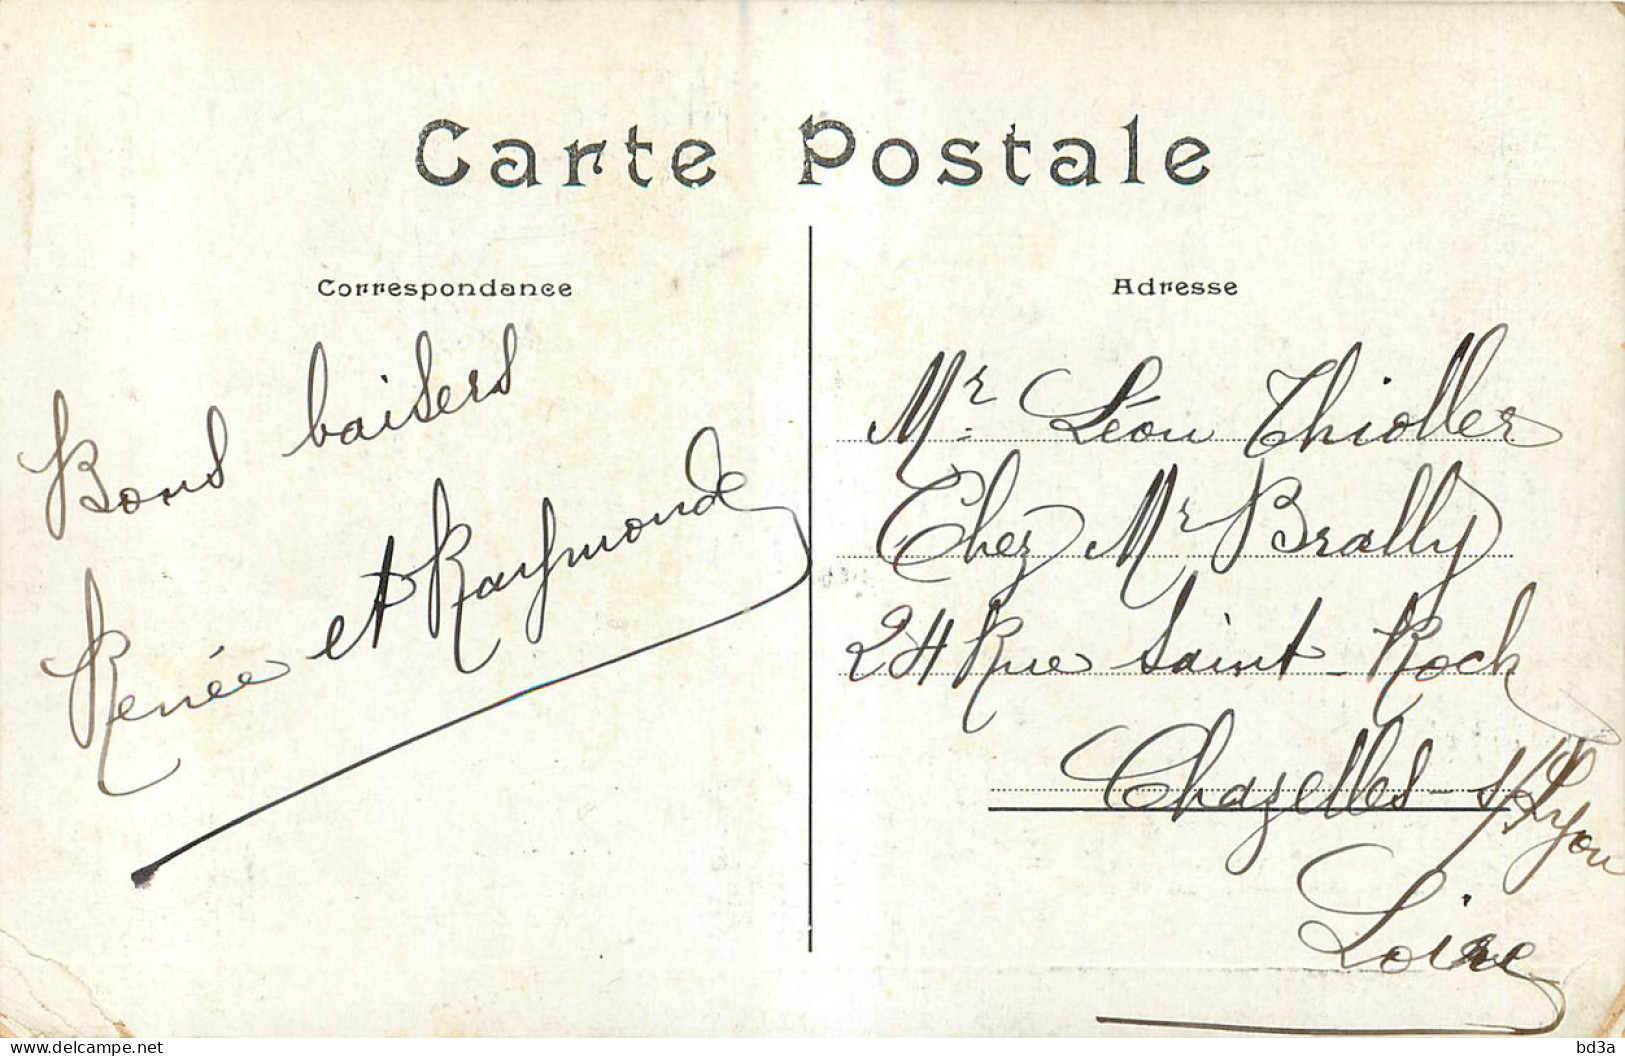 Carte Postale
Correspondance
Bons baisers
Renée et Raymonde
Adresse
Mr Léon Thioller
Chez Mr Brally
24 Rue Saint-Roch
Chazelles-s/Lyon
Loire
www.delcampe.net
bd3a